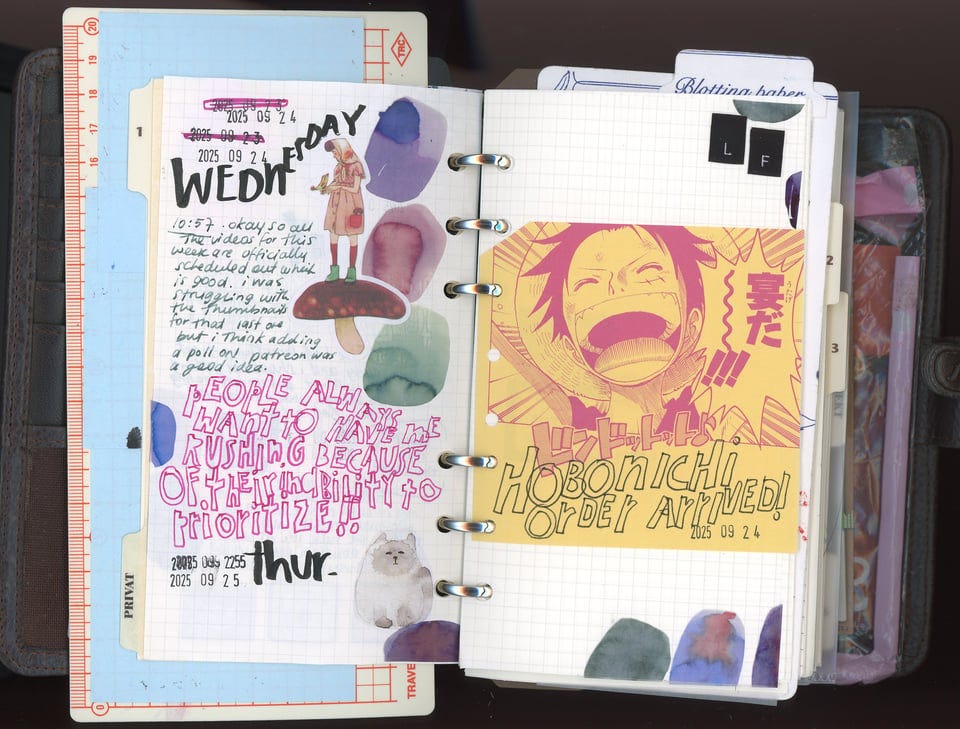 20
19
18
17
16
TRC
1
2025 09 23
2025 09 24
2025 09 23
2025 09 24
WEDNESDAY
10:57. okay so all
the videos for this
week are officially
scheduled out which
is good. i was
struggling with
the thumbnails
for that last one
but i think adding
a poll on patreon was
a good idea.
PEOPLE ALWAYS
WANT to HAVE ME
RUSHING BECAUSE
OF their inABILITY to
PRIORITIZE!!
2025 09 25
thur.
PRIVAT
0
TRAVE
Blotting paper
L F
宴だ
うたげ
!!!
ドンドットット♪
HOBONICHI
OrDEr ArrIVED!
2025 09 24
2
3